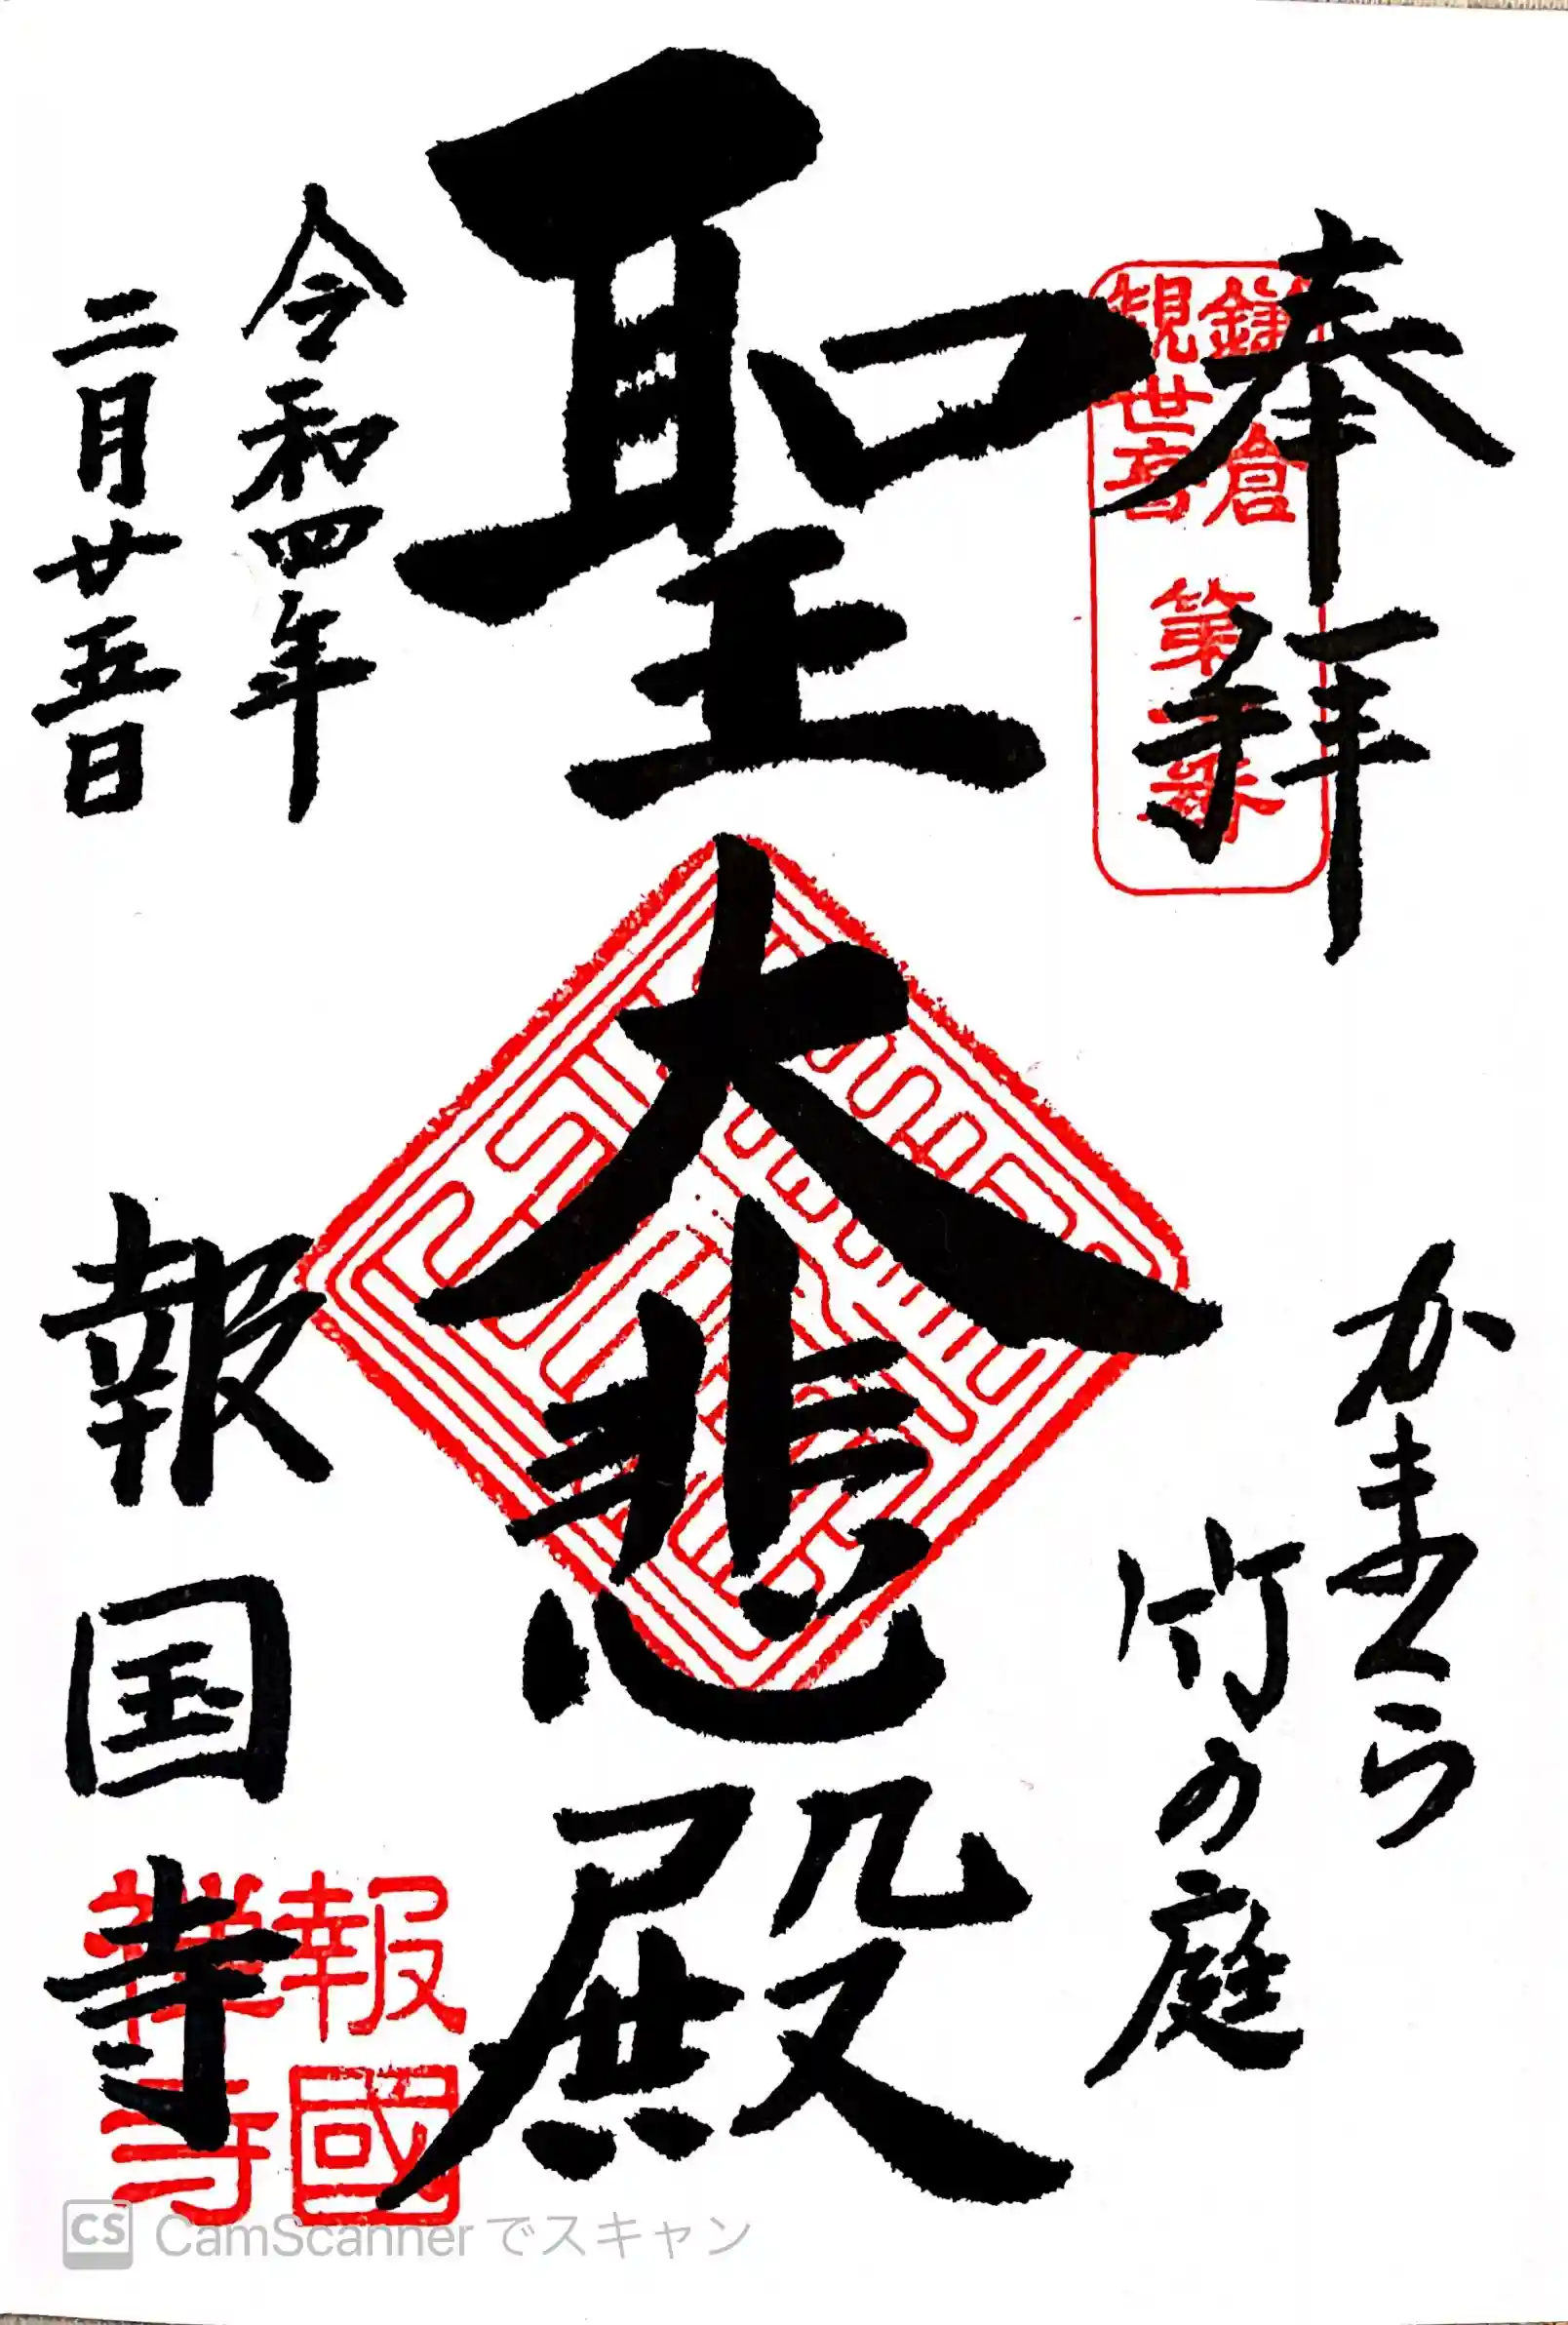 奉拝
かまくら
竹の庭
鎌倉
観世音
第十番
聖大悲殿
令和四年
二月廿五日
報国寺
報國
禅寺
CS CamScanner でスキャン